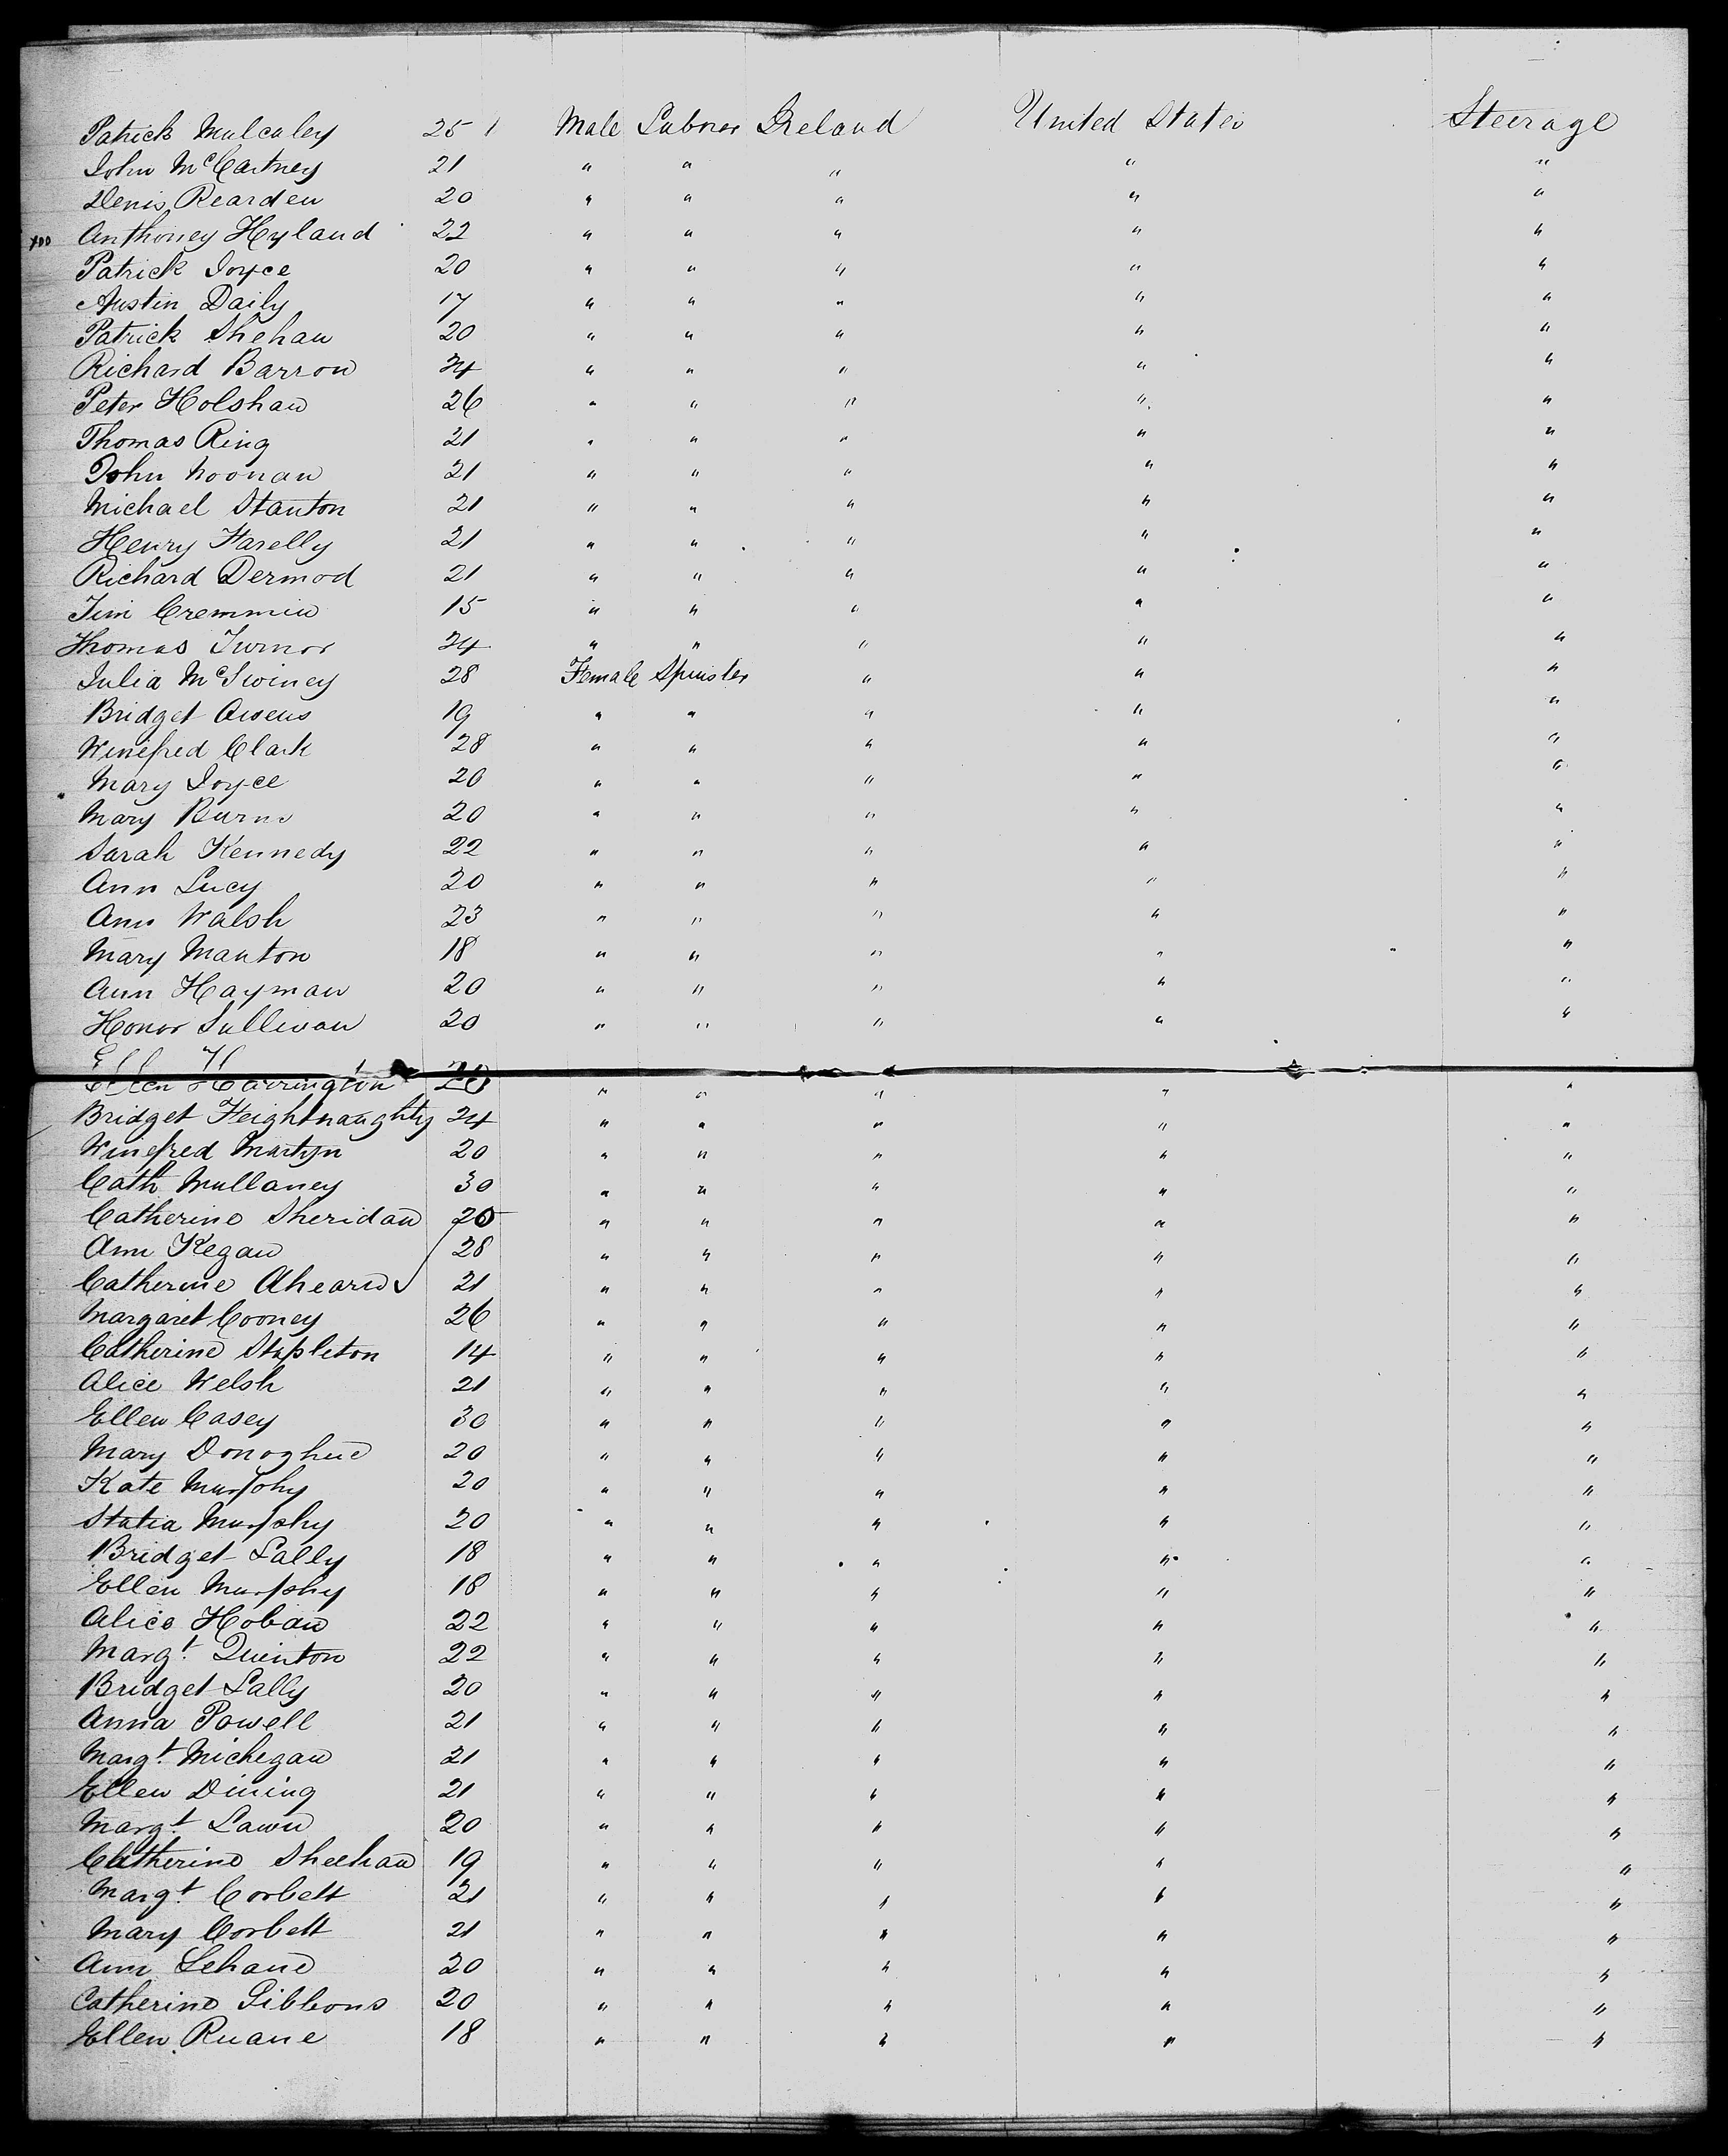 Patrick Mulcaley 25 Male Laborer Ireland United States Steerage
John McCartney 21 " " " " "
Denis Rearden 20 " " " " "
Anthoney Hyland 22 " " " " "
Patrick Joyce 20 " " " " "
Austin Daily 17 " " " " "
Patrick Shehan 20 " " " " "
Richard Barron 24 " " " " "
Peter Holshan 26 " " " " "
Thomas Ring 21 " " " " "
John Noonan 21 " " " " "
Michael Stanton 21 " " " " "
Henry Farelly 21 " " " " "
Richard Dermod 21 " " " " "
Jim Cremmin 15 " " " " "
Thomas Turner 24 " " " " "
Julia McSwiney 28 Female Spinster " " "
Bridget Owens 19 " " " " "
Winefred Clark 28 " " " " "
Mary Joyce 20 " " " " "
Mary Burns 20 " " " " "
Sarah Kennedy 22 " " " " "
Ann Lucy 20 " " " " "
Ann Walsh 23 " " " " "
Mary Manton 18 " " " " "
Ann Hayman 20 " " " " "
Honor Sullivan 20 " " " " "
Ellen Harrington 20 " " " " "
Bridget Feightnaughty 24 " " " " "
Winefred Martyn 20 " " " " "
Cath Mullaney 30 " " " " "
Catherine Sheridan 20 " " " " "
Ann Kegan 28 " " " " "
Catherine Ahearn 21 " " " " "
Margaret Cooney 26 " " " " "
Catherine Stapleton 14 " " " " "
Alice Welsh 21 " " " " "
Ellen Casey 30 " " " " "
Mary Donoghue 20 " " " " "
Kate Murphy 20 " " " " "
Statia Murphy 20 " " " " "
Bridget Lally 18 " " " " "
Ellen Murphy 18 " " " " "
Alice Hoban 22 " " " " "
Margt. Quinton 22 " " " " "
Bridget Lally 20 " " " " "
Anna Powell 21 " " " " "
Margt. Michegan 21 " " " " "
Ellen Dining 21 " " " " "
Margt. Lawn 20 " " " " "
Catherine Sheehan 19 " " " " "
Margt. Corbett 21 " " " " "
Mary Corbett 21 " " " " "
Ann Lehane 20 " " " " "
Catherine Gibbons 20 " " " " "
Ellen Ruane 18 " " " " "